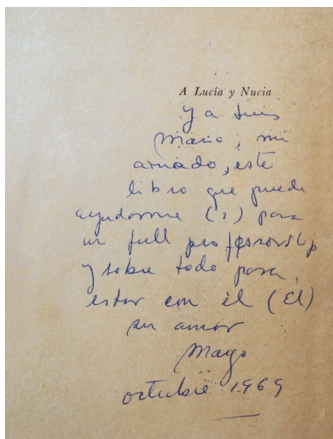 A Lucía y Nucia
y a Luis
Mario, mi
amado, este
libro que puede
ayudarme (?) para
un full professorship
y sobre todo para
estar con él (El)
su amor
Mayo
octubre 1969